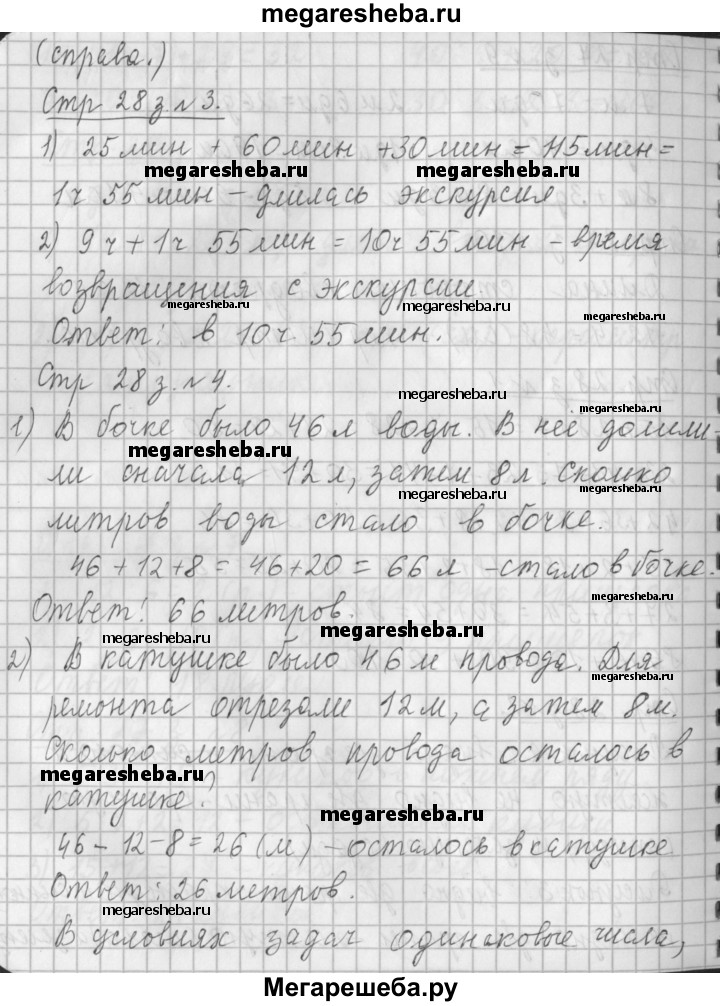 megaresheba.ru
(справа.)
Стр 28 з. №3.
1) 25 мин + 60 мин + 30 мин = 115 мин =
megaresheba.ru megaresheba.ru
1 ч 55 мин – длилась экскурсия
2) 9 ч + 1 ч 55 мин = 10 ч 55 мин – время
возвращения с экскурсии.
megaresheba.ru megaresheba.ru
megaresheba.ru
Ответ: в 10 ч 55 мин.
Стр 28 з. №4.
megaresheba.ru
1) В бочке было 46 л воды. В неё долили-
megaresheba.ru
ли сначала 12 л, затем 8 л. Сколько
megaresheba.ru megaresheba.ru
литров воды стало в бочке.
46 + 12 + 8 = 46 + 20 = 66 л – стало в бочке.
megaresheba.ru
Ответ! 66 литров.
megaresheba.ru megaresheba.ru
2) В катушке было 46 м провода. Для
megaresheba.ru
ремонта отрезали 12 м, а затем 8 м.
Сколько метров провода осталось в
megaresheba.ru
катушке?
megaresheba.ru
46 – 12 – 8 = 26 (м) – осталось в катушке
Ответ: 26 метров.
megaresheba.ru
В условиях задач одинаковые числа,
megaresheba.ru
Мегарешеба.ру